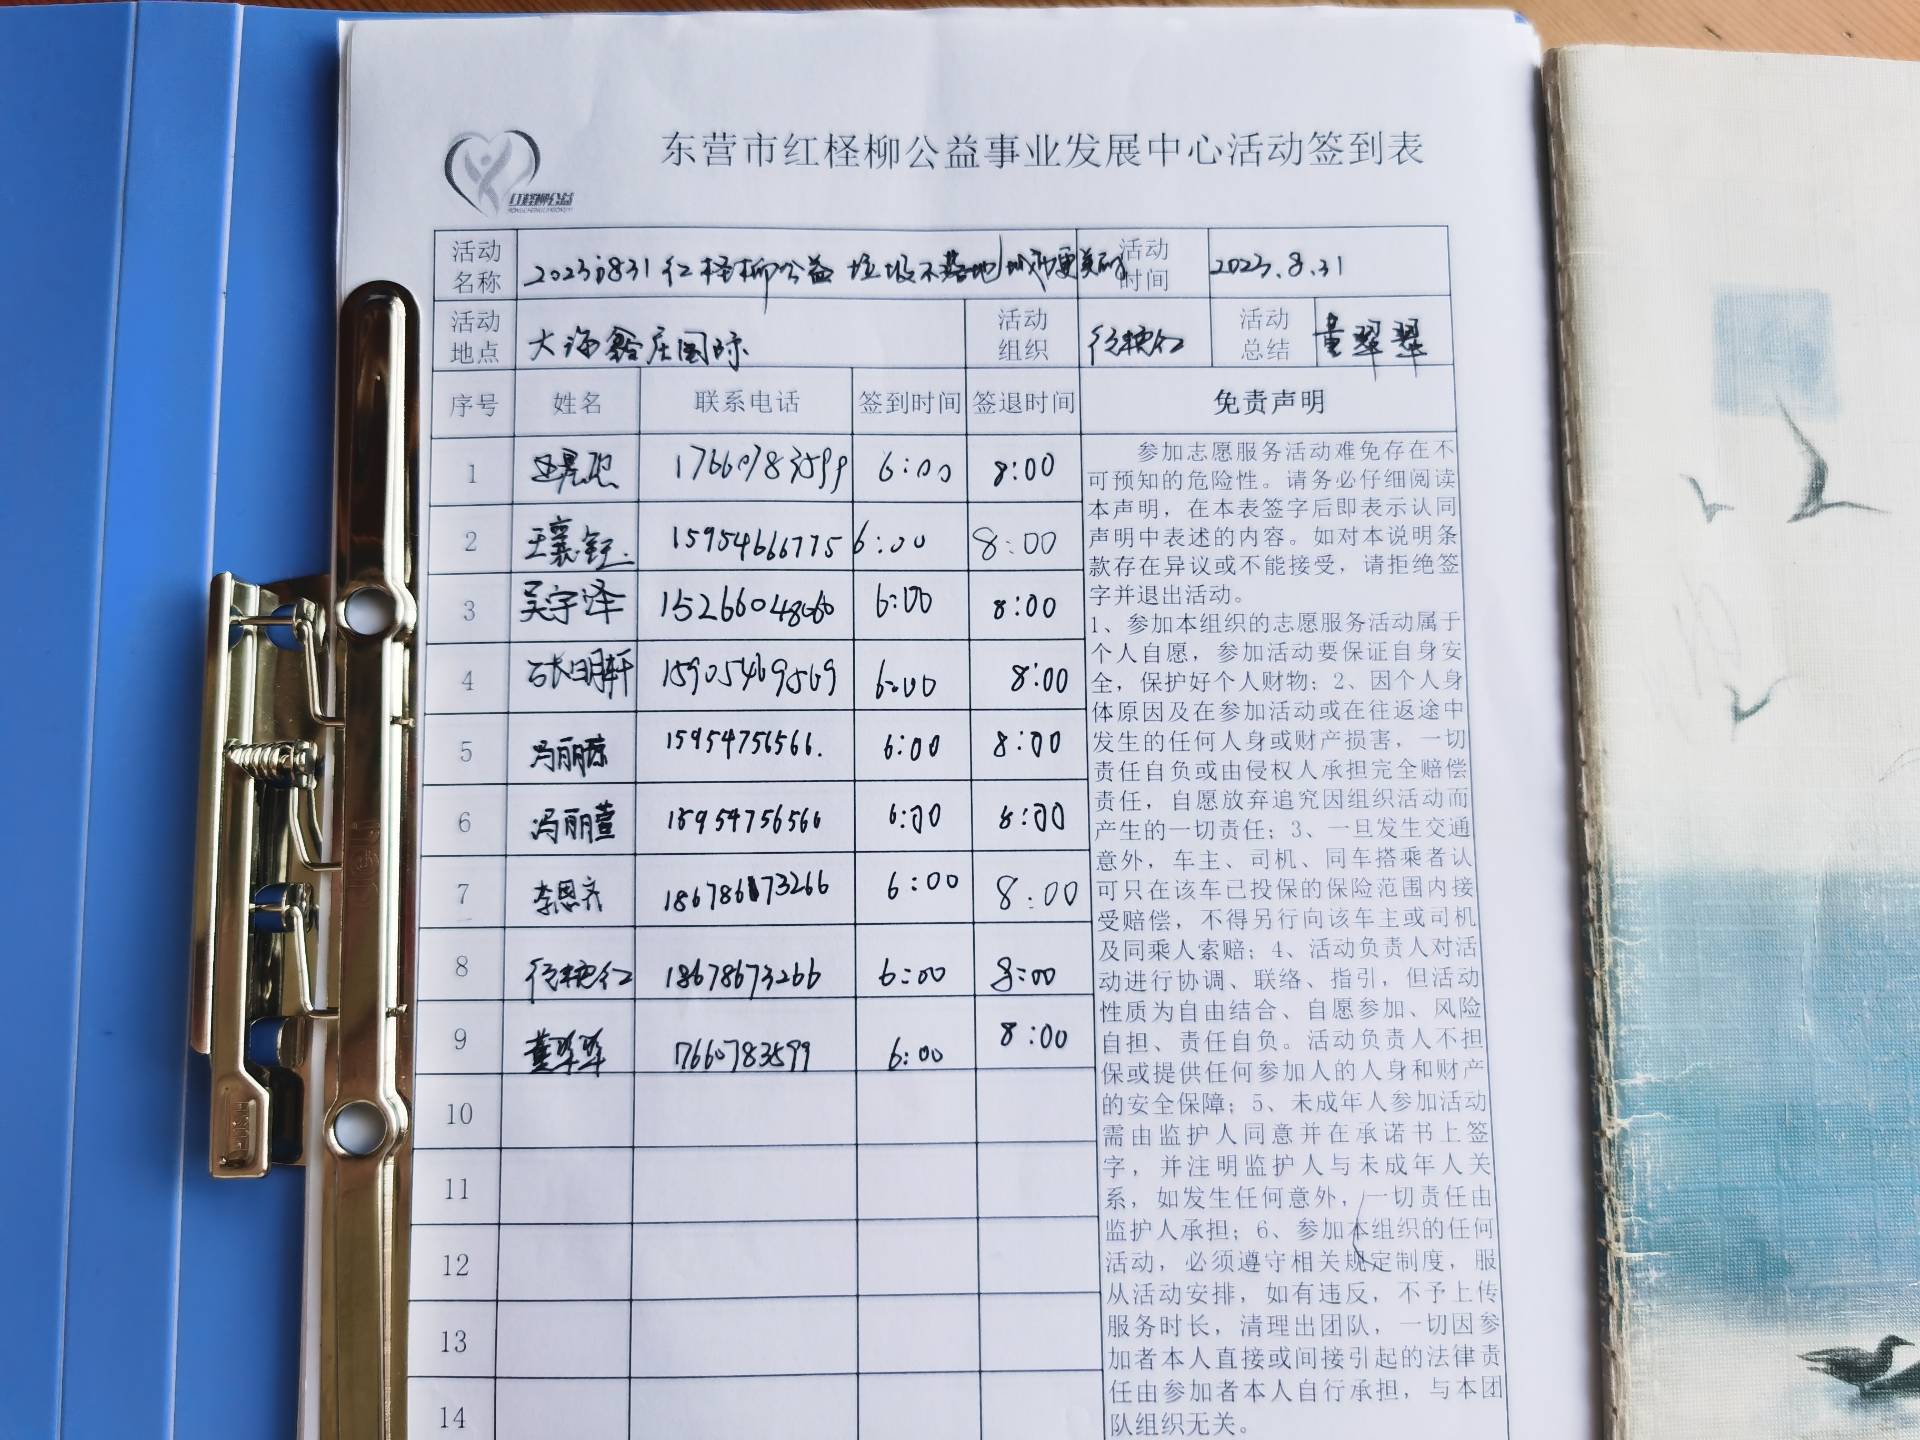 东营市红柽柳公益事业发展中心活动签到表
红柽柳公益
活动名称 2023.831红柽柳公益 垃圾不落地 城市更美丽 活动时间 2023.8.31
活动地点 大海 庄国际 活动组织 红 活动总结 董翠翠
序号 姓名 联系电话 签到时间 签退时间 免责声明
1 17660783599 6:00 8:00
2 王襄钰 15954666775 6:00 8:00
3 吴宇泽 15266048060 6:00 8:00
4 石长明轩 15905469569 6:00 8:00
5 冯丽琼 15954756566. 6:00 8:00
6 冯丽萱 15954756566 6:00 8:00
7 李恩齐 18678673266 6:00 8:00
8 红 18678673266 6:00 8:00
9 董翠翠 17660783599 6:00 8:00
10
11
12
13
14
参加志愿服务活动难免存在不
可预知的危险性。请务必仔细阅读
本声明，在本表签字后即表示认同
声明中表述的内容。如对本说明条
款存在异议或不能接受，请拒绝签
字并退出活动。
1、参加本组织的志愿服务活动属于
个人自愿，参加活动要保证自身安
全，保护好个人财物；2、因个人身
体原因及在参加活动或在往返途中
发生的任何人身或财产损害，一切
责任自负或由侵权人承担完全赔偿
责任，自愿放弃追究因组织活动而
产生的一切责任；3、一旦发生交通
意外，车主、司机、同车搭乘者认
可只在该车已投保的保险范围内接
受赔偿，不得另行向该车主或司机
及同乘人索赔；4、活动负责人对活
动进行协调、联络、指引，但活动
性质为自由结合、自愿参加、风险
自担、责任自负。活动负责人不担
保或提供任何参加人的人身和财产
的安全保障；5、未成年人参加活动
需由监护人同意并在承诺书上签
字，并注明监护人与未成年人关
系，如发生任何意外，一切责任由
监护人承担；6、参加本组织的任何
活动，必须遵守相关规定制度，服
从活动安排，如有违反，不予上传
服务时长，清理出团队，一切因参
加者本人直接或间接引起的法律责
任由参加者本人自行承担，与本团
队组织无关。